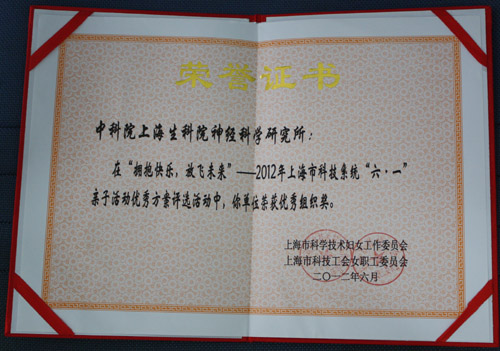 荣誉证书
中科院上海生科院神经科学研究所：
在“拥抱快乐，放飞未来”——2012年上海市科技系统“六·一”
亲子活动优秀方案评选活动中，你单位荣获优秀组织奖。
上海市科学技术妇女工作委员会
上海市科技工会女职工委员会
二〇一二年六月